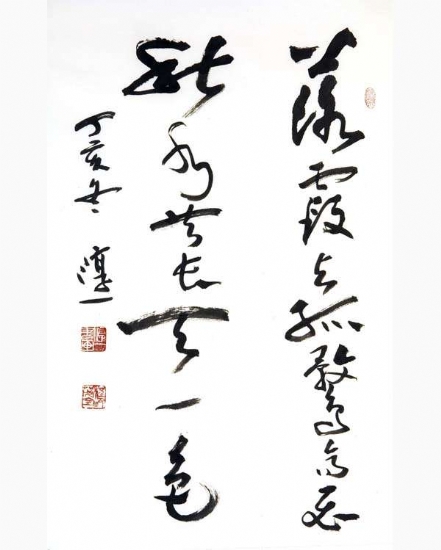 落霞与孤鹜齐飞
秋水共长天一色
丁亥冬 淳一